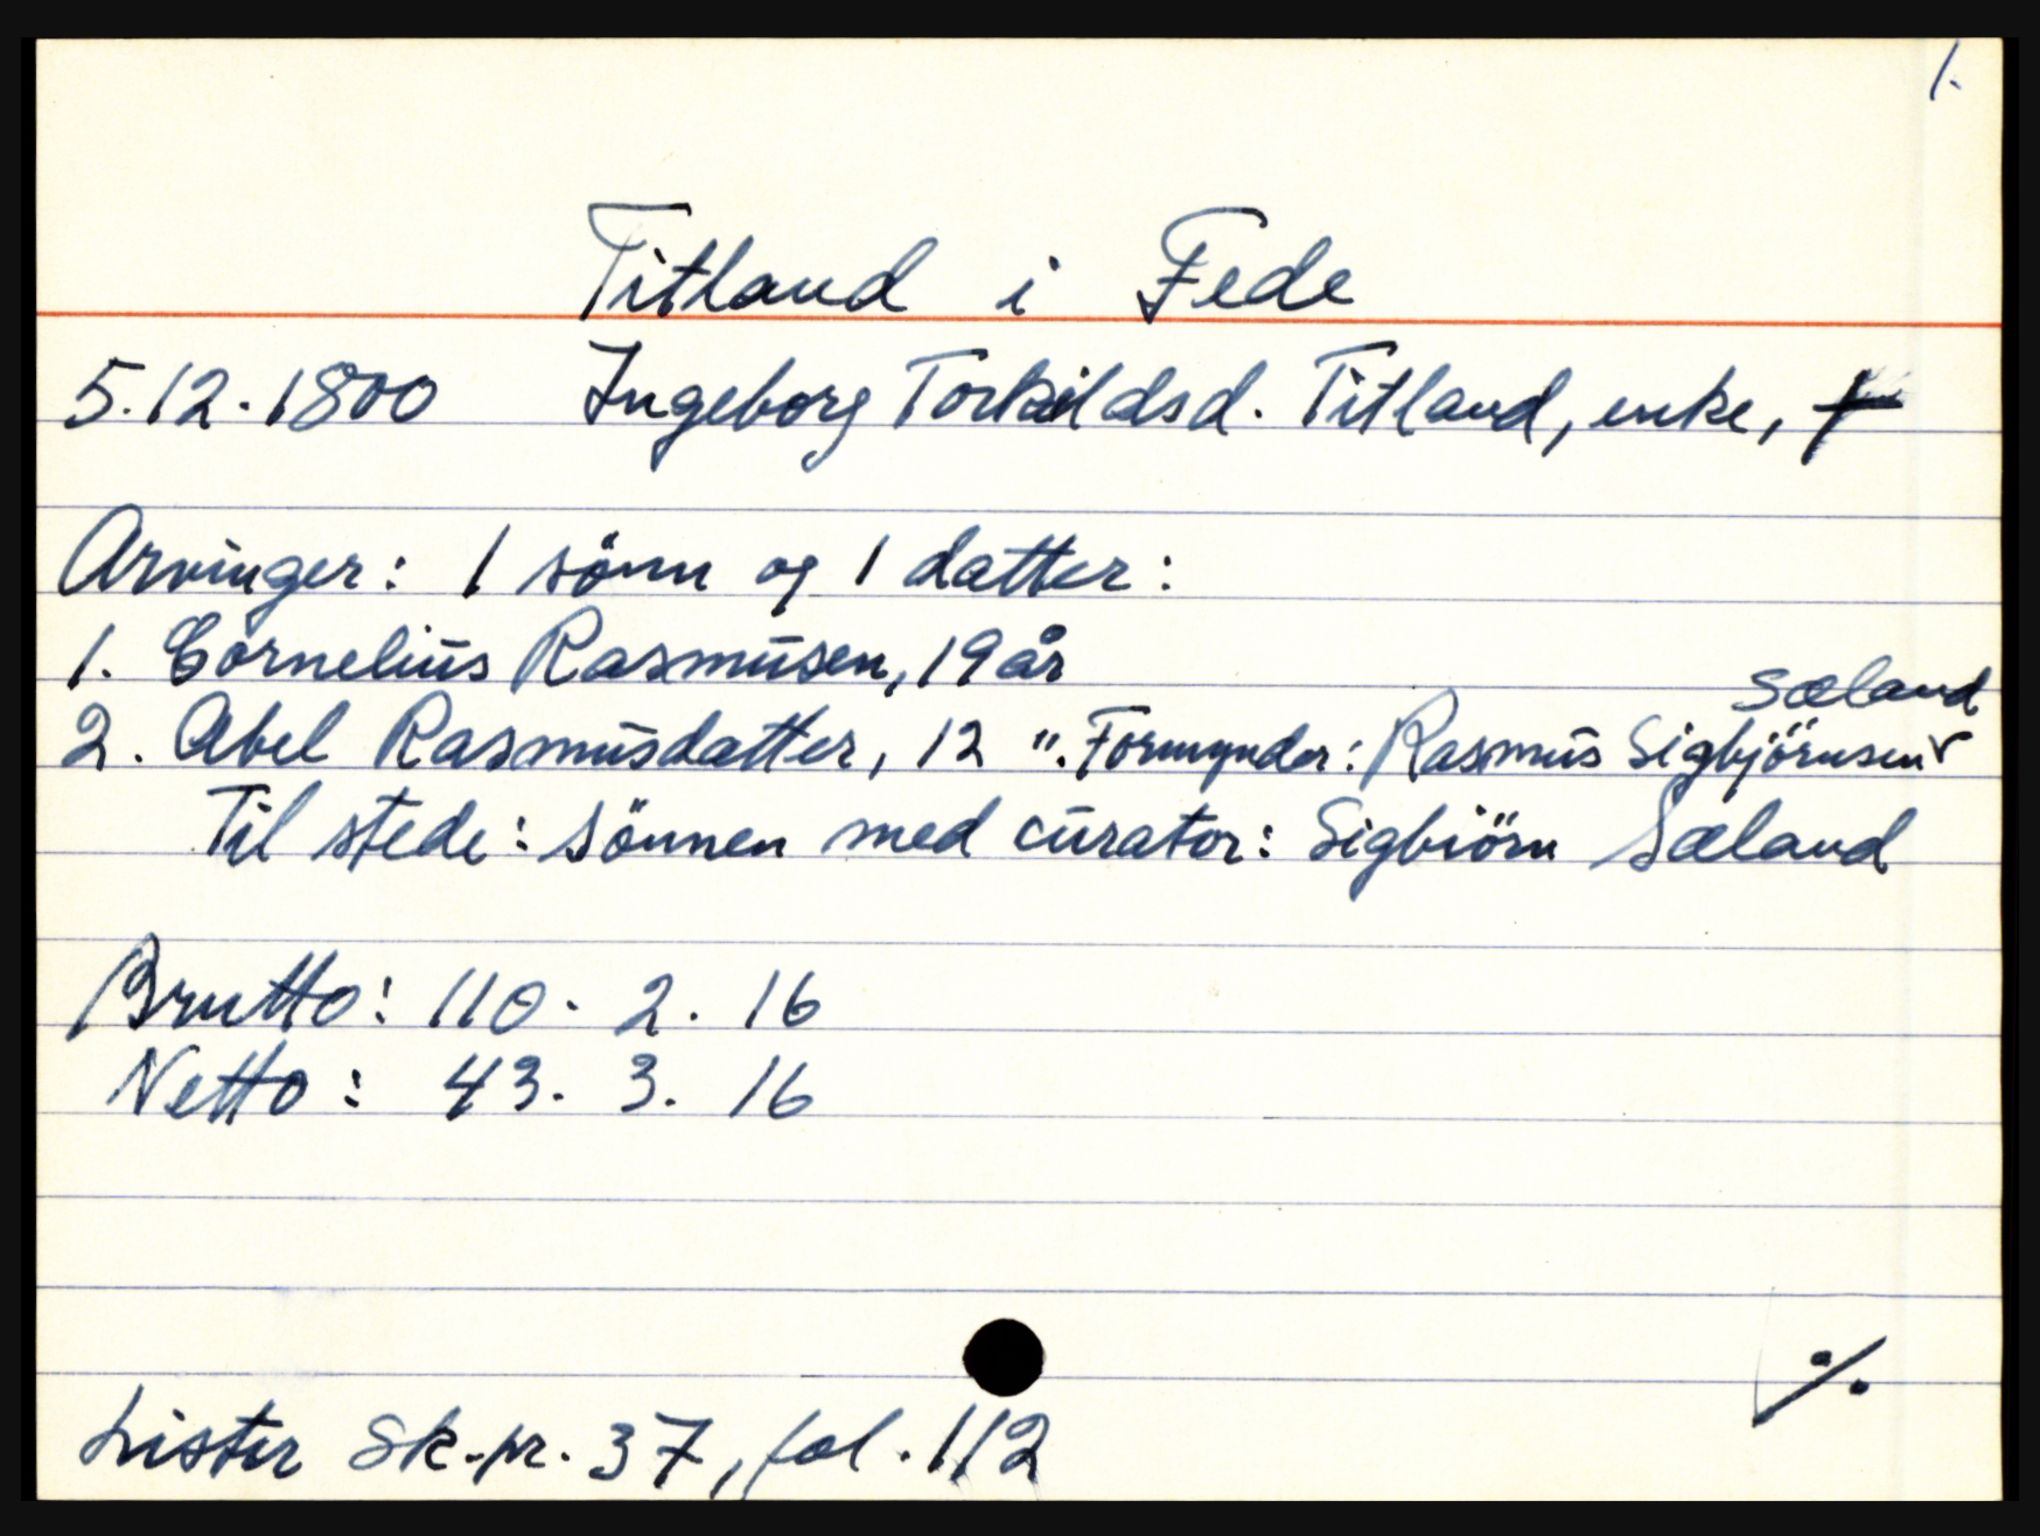 1.
Titland i Fede
5.12.1800 Ingeborg Torkildsd. Titland, enke, †
Arvinger: 1 sönn og 1 datter:
1. Cornelius Rasmusen, 19 år
2. Abel Rasmusdatter, 12 ". Formynder: Rasmus Sigbjörnsen Sæland
Til stede: sönnen med curator: Sigbiörn Sæland
Brutto: 110. 2. 16
Netto: 43. 3. 16
./.
Lister Sk.pr. 37, fol. 112